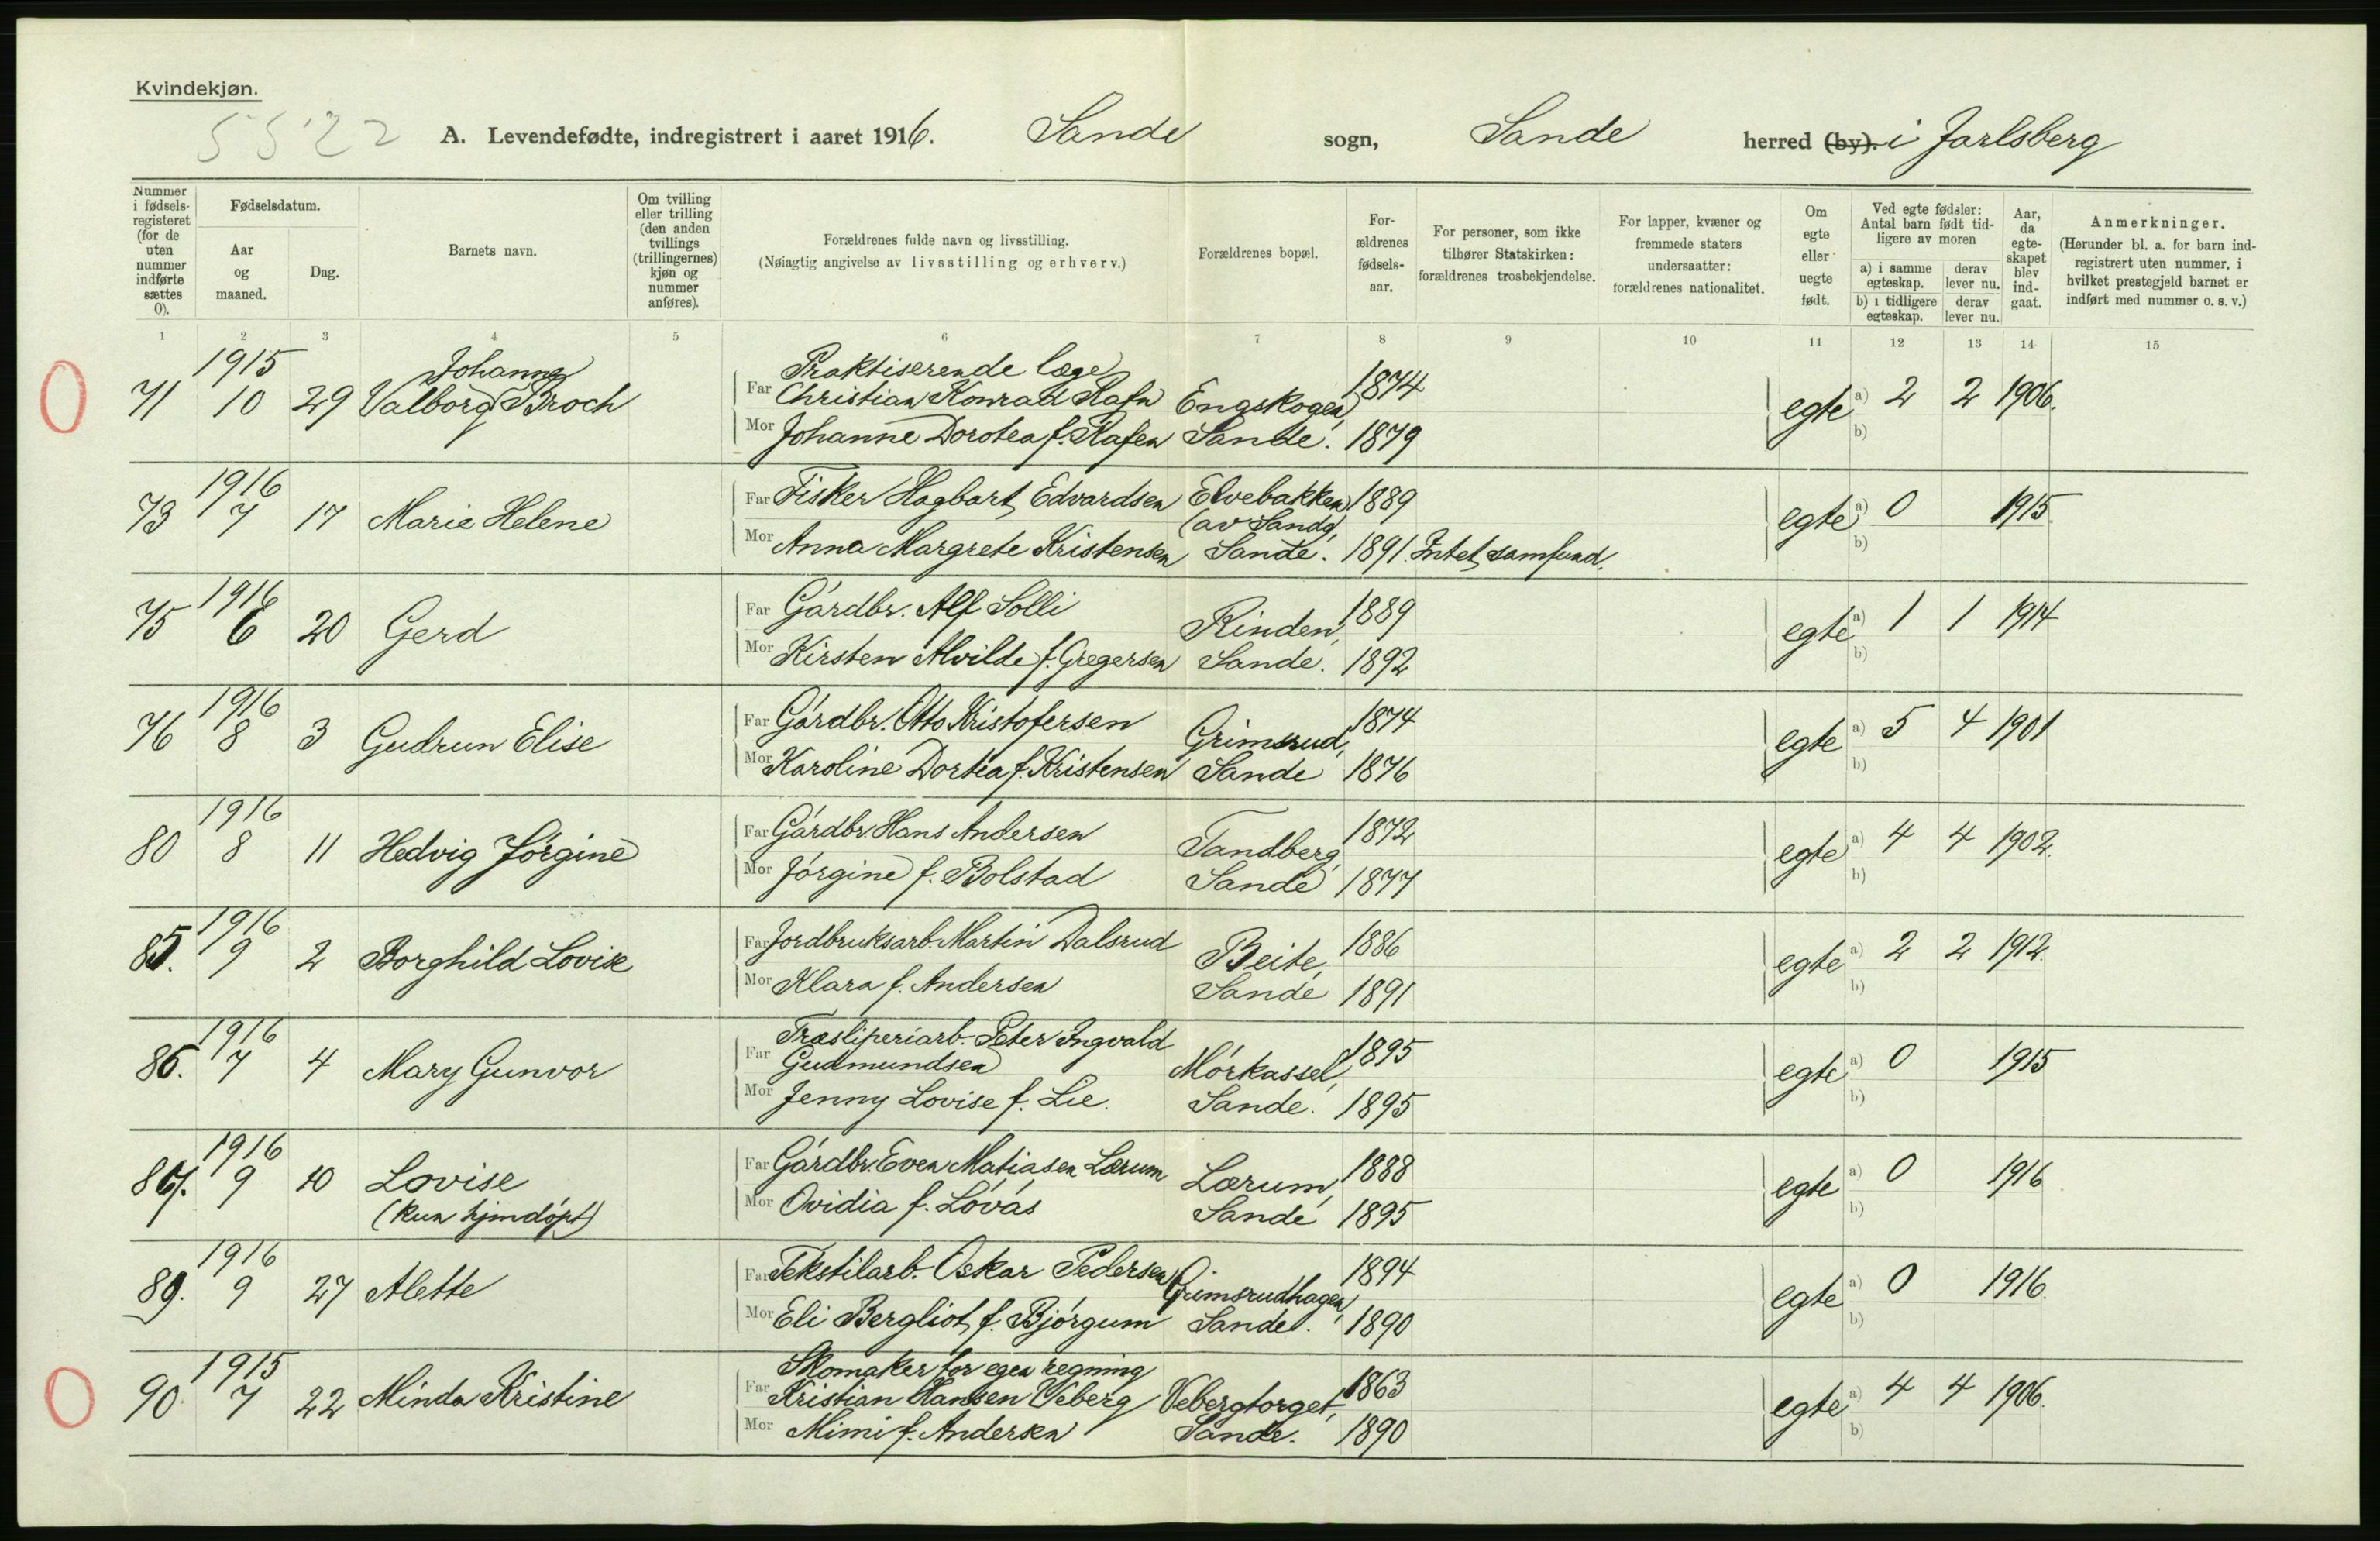 Kvindekjøn.
5522
A. Levendefødte, indregistrert i aaret 1916. Sande sogn, Sande herred (by). i Jarlsberg
Nummer i fødselsregisteret (for de uten nummer indførte sættes 0).
Fødselsdatum.
Aar og maaned.
Dag.
Barnets navn.
Om tvilling eller trilling (den anden tvillings (trillingernes) kjøn og nummer anføres).
Forældrenes fulde navn og livsstilling.
(Nøiagtig angivelse av livsstilling og erhverv.)
Forældrenes bopæl.
Forældrenes fødselsaar.
For personer, som ikke tilhører Statskirken: forældrenes trosbekjendelse.
For lapper, kvæner og fremmede staters undersaatter: forældrenes nationalitet.
Om egte eller uegte født.
Ved egte fødsler: Antal barn født tidligere av moren
a) i samme egteskap.
derav lever nu.
b) i tidligere egteskap.
derav lever nu.
Aar, da egteskapet blev indgaat.
Anmerkninger.
(Herunder bl. a. for barn indregistrert uten nummer, i hvilket prestegjeld barnet er indført med nummer o. s. v.)
1 2 3 4 5 6 7 8 9 10 11 12 13 14 15
1915 Johanne Praktiserende læge
71 10 29 Valborg Broch Far Christian Konrad Rafn Engskogen, 1874 egte a) 2 2 1906.
Mor Johanne Dorotea f. Rafen Sande. 1879 b)
1916 Far Fisker Hagbart Edvardsen Elvebakken 1889
73 7 17 Marie Helene (av Sand), egte a) 0 1915.
Mor Anna Margrete Kristensen Sande. 1891. Intet samfund. b)
1916 Far Gårdbr. Alf Solli 1889
75 6 20 Gerd Rinden, egte a) 1 1 1914
Mor Kirsten Alvilde f. Gregersen Sande. 1892 b)
1916 Far Gårdbr. Otto Kristofersen 1874
76 8 3 Gudrun Elise Grimsrud, egte a) 5 4 1901
Mor Karoline Dortea f. Kristensen Sande 1876 b)
1916 Far Gårdbr. Hans Andersen 1872
80 8 11 Hedvig Jørgine Tandberg, egte a) 4 4 1902.
Mor Jørgine f. Bolstad Sande 1877 b)
1916 Far Jordbruksarb. Martin Dalsrud 1886
85. 9 2 Borghild Lovise Beite, egte a) 2 2 1912.
Mor Klara f. Andersen Sande 1891 b)
1916 Træsliperiarb. Peter Ingvald
86. 7 4 Mary Gunvor Far Gudmundsen Mørkassel, 1895 egte a) 0 1915
Mor Jenny Lovise f. Lie. Sande. 1895 b)
1916 Far Gårdbr. Even Matiasen Lærum 1888
87. 9 10 Lovise Lærum, egte a) 0 1916
(kun hjmdøpt) Mor Ovidia f. Løvås Sande 1895 b)
1916 Far Tekstilarb. Oskar Pedersen 1894
89. 9 27 Alette Grimsrudhagen, egte a) 0 1916.
Mor Eli Bergliot f. Bjørgum Sande. 1890 b)
1915 Skomaker for egen regning
90. 7 22 Minda Kristine Far Kristian Hansen Veberg Vebergtorget, 1863 egte a) 4 4 1906.
Mor Mimi f. Andersen Sande. 1890 b)